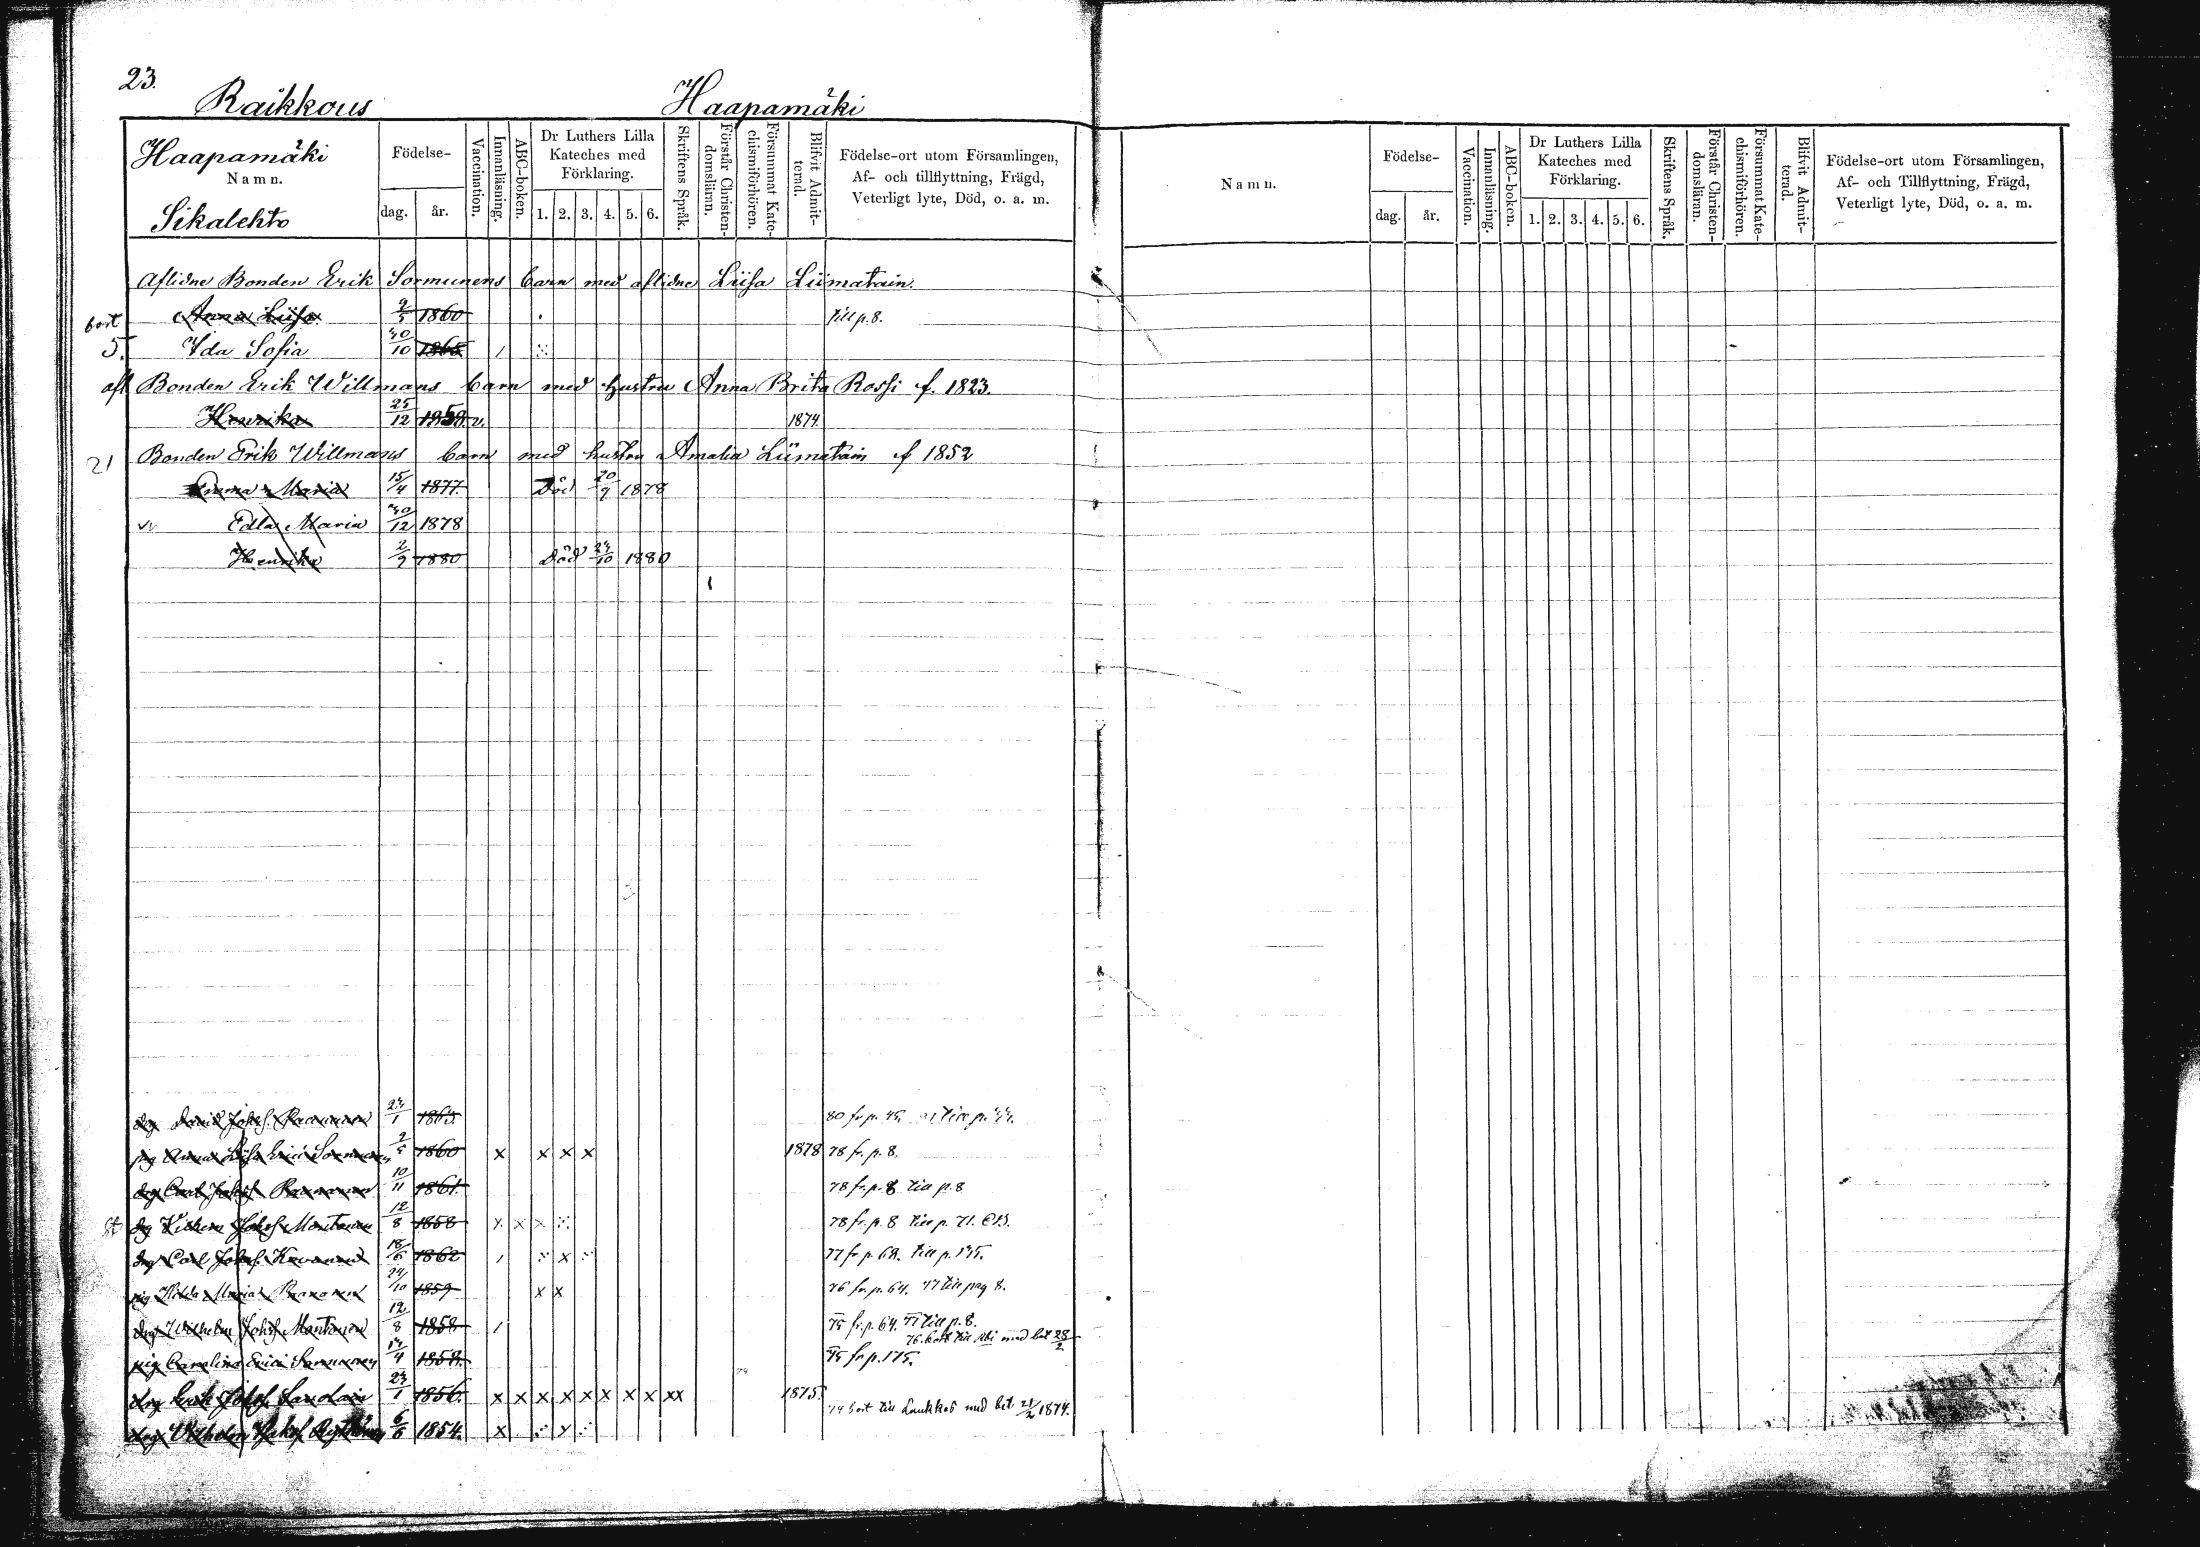 23.
Raikkous Haapamäki
Haapamäki
Namn.
Sikalehto
Födelse-
dag. år.
Vaccination.
Innanläsning.
ABC-boken.
Dr Luthers Lilla
Kateches med
Förklaring.
1. 2. 3. 4. 5. 6.
Skriftens Språk.
Förstår Christen-
domsläran.
Försummat Kate-
chismiförhören.
Blifvit Admit-
terad.
Födelse-ort utom Församlingen,
Af- och tillflyttning, Frägd,
Veterligt lyte, Död, o. a. m.
Aflidne Bonden Erik Sormunens barn med aflidne Liisa Liimatain.
bort Anna Liisa 2/5 1860 till p. 8.
5. Ida Sofia 30/10 1865
afl Bonden Erik Willmans barn med hustru Anna Brita Rossi f. 1823.
Henrika 25/12 1858. v. 1874.
21 Bonden Erik Willmans barn med hustru Amalia Liimatain f 1852
Emma Maria 15/4 1877. Död 20/9 1878
Edla Maria 30/12 1878
Henrika 2/9 1880 Död 24/10 1880
drg David Johss. 24/1 1863. 80 fr. p. 45. till p.
pig Anna Liisa Erici Sormunen 2/5 1860 x x x x 1878 78 fr. p. 8.
drg Carl Johss. 10/11 1861. 78 fr. p. 8 till p. 8
drg Vilhem Johss Montonen 12/8 1858 x x x 78 fr. p. 8 till p. 71.
drg Carl Johss. 18/6 1862 x 77 fr p. 69. till p. 135.
pig Hilda Maria 24/10 1859 x x 76 fr. p. 64. 77 till pag 8.
drg Wilhelm Johss Montonen 12/8 1858 75 fr. p. 64. 77 till p. 8.
76. bort till Abi med bet 28/2
pig Carolina Erici Sormunen 14/4 1858. 75 fr p. 175.
drg Erik Johss. 23/1 1856. x x x x x x x x xx 74 1875.
74 bort till Laukkas med bet 21/2 1874.
drg Vilhelm 6/6 1854. x x
Namn.
Födelse-
dag. år.
Vaccination.
Innanläsning.
ABC-boken.
Dr Luthers Lilla
Kateches med
Förklaring.
1. 2. 3. 4. 5. 6.
Skriftens Språk.
Förstår Christen-
domsläran.
Försummat Kate-
chismiförhören.
Blifvit Admit-
terad.
Födelse-ort utom Församlingen,
Af- och Tillflyttning, Frägd,
Veterligt lyte, Död, o. a. m.